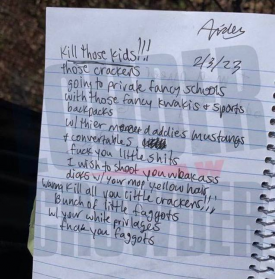 Aiden
Kill those kids!!!
2/3/23
those crackers
going to private fancy schools
with those fancy khakis & sports
backpacks
w/ thier daddies mustangs
& convertables
fuck you little shits
I wish to shoot you weakass
dicks w/ your mop yellow hair
wanna kill all you little crackers!!!
Bunch of little faggots
w/ your white privlages
fuck you faggots